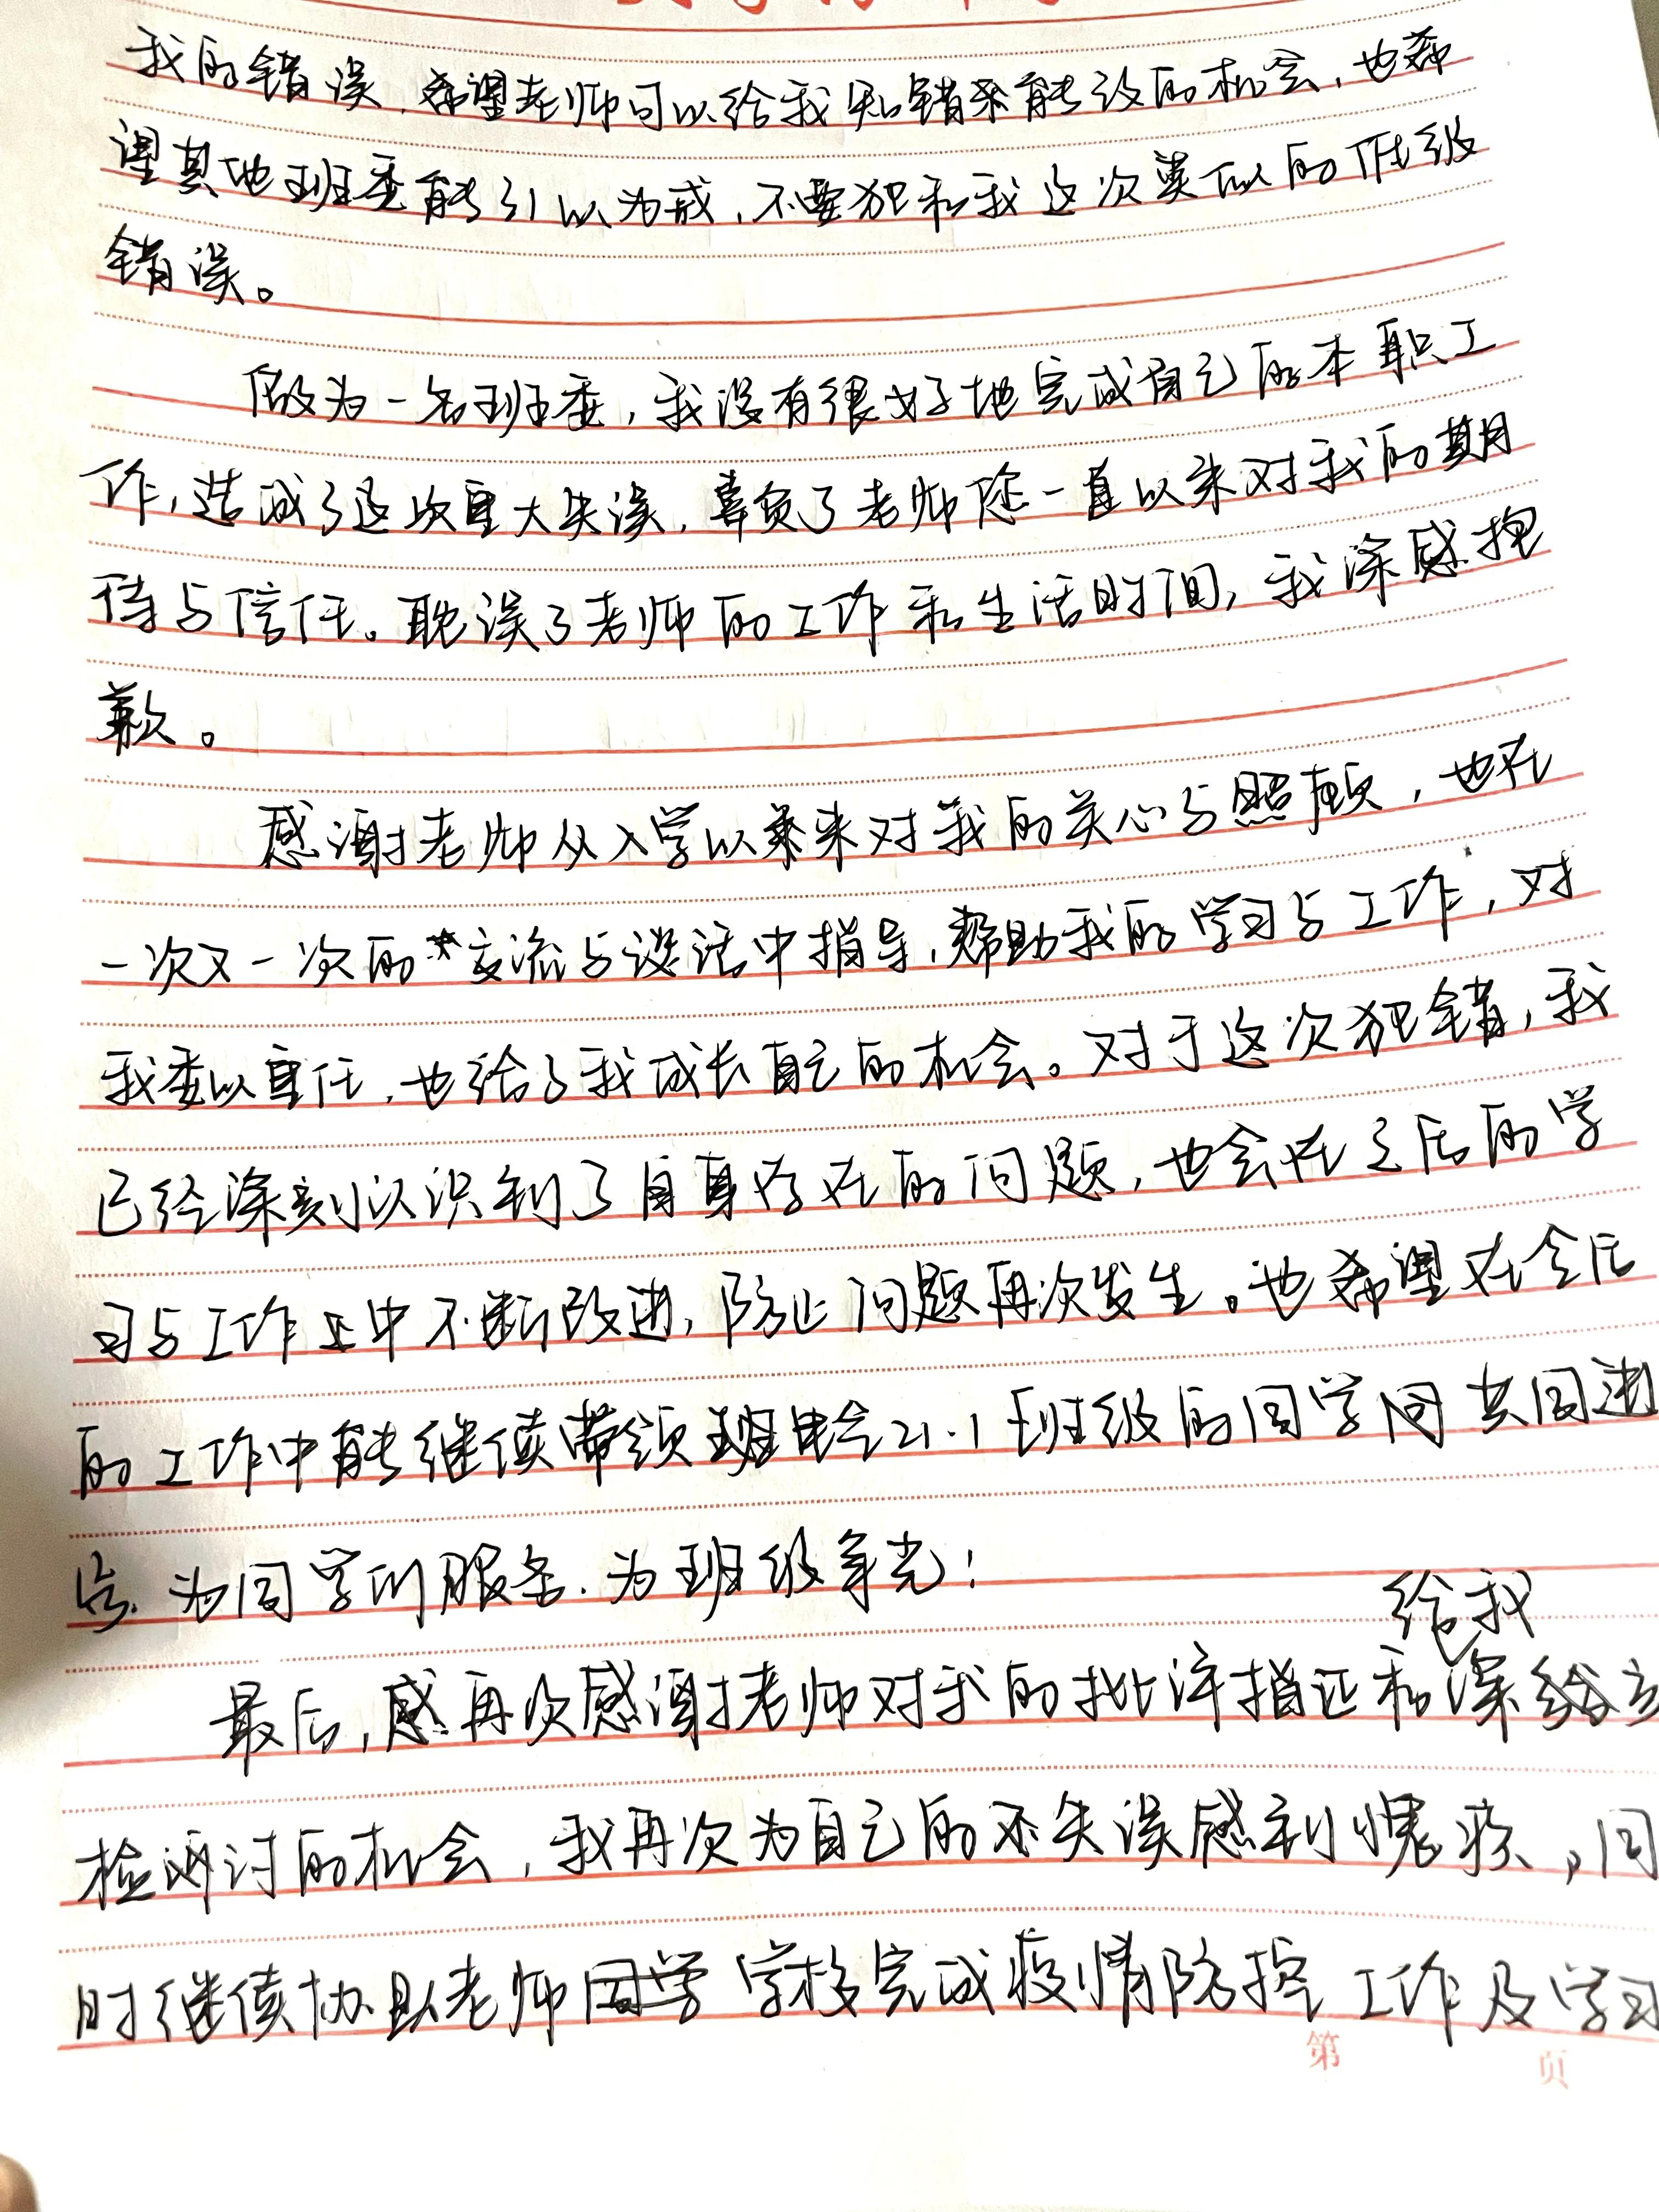 我的错误，希望老师可以给我知错就能改的机会，也希
望其他班委能引以为戒，不要犯和我这次类似的低级
错误。
做为一名班委，我没有很好地完成自己的本职工
作，造成了这次重大失误，辜负了老师您一直以来对我的期
待与信任。耽误了老师的工作和生活时间，我深感抱
歉。
感谢老师从入学以来对我的关心与照顾，也在
一次又一次的交流与谈话中指导，帮助我的学习与工作，对
我委以重任，也给了我成长自己的机会。对于这次犯错，我
已经深刻认识到了自身存在的问题，也会在之后的学
习与工作中不断改进，防止问题再次发生。也希望在今后
的工作中能继续带领电气21.1班级的同学间共同进
步。为同学们服务。为班级争光！
给我
最后，再次感谢老师对我的批评指证和深
检讨的机会，我再次为自己的失误感到愧疚，同
时继续协助老师学校完成疫情防控工作及学习
第 页